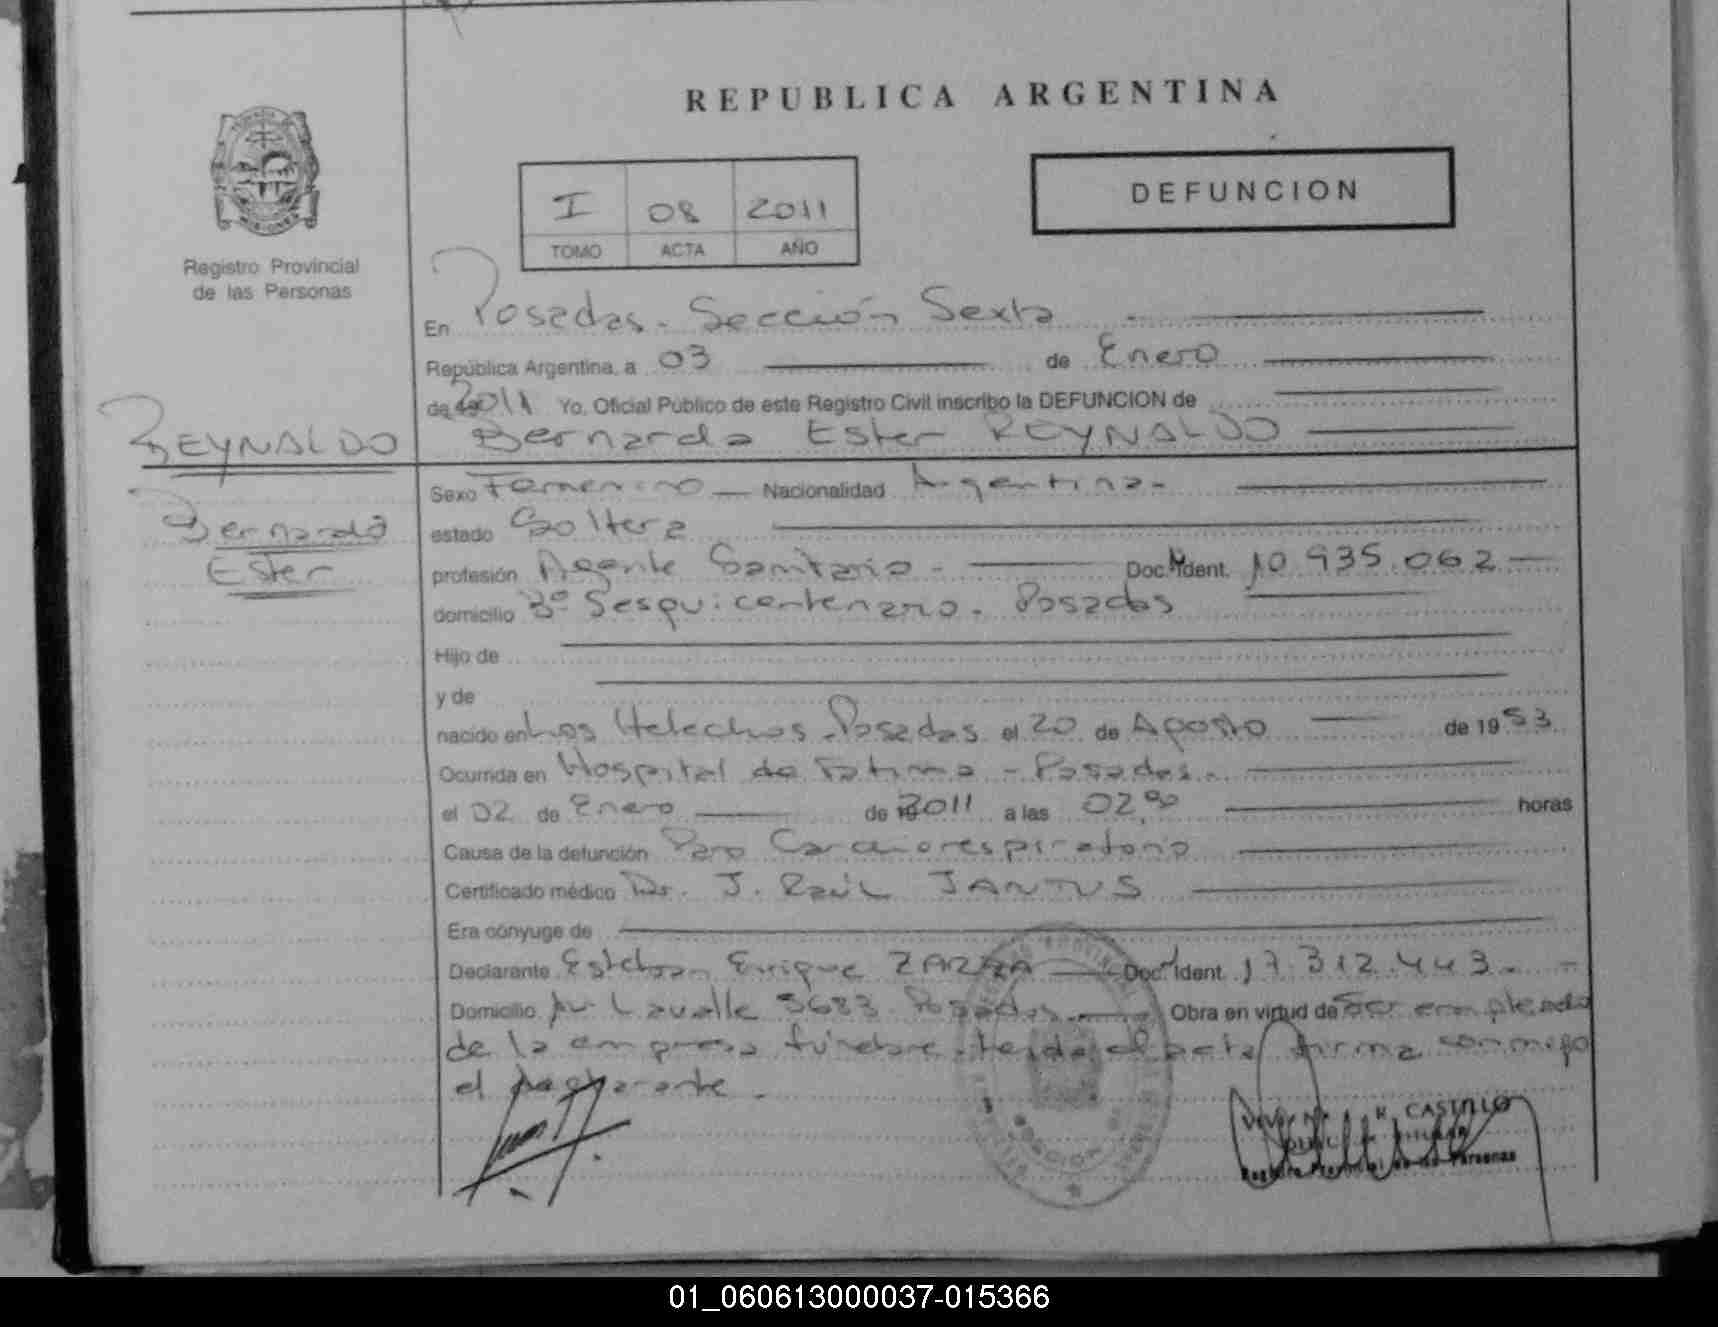 REPUBLICA ARGENTINA
DEFUNCION
I 08 2011
TOMO ACTA AÑO
Registro Provincial
de las Personas
En Posadas - Sección Sexta
República Argentina, a 03 de Enero
de 2011 Yo, Oficial Público de este Registro Civil inscribo la DEFUNCION de
REYNALDO
Bernarda Ester REYNALDO
Bernarda
Ester
Sexo Femenino Nacionalidad Argentina-
estado Soltera
profesión Agente Sanitario - Doc. Ident. 10.935.062
domicilio Bº Sesquicentenario - Posadas
Hijo de
y de
nacido en Los Helechos - Posadas el 20 de Agosto de 1953
Ocurrida en Hospital de Fatima - Posadas -
el 02 de Enero de 2011 a las 02, horas
Causa de la defunción Paro Cardiorespiratorio
Certificado médico Dr. J. Raúl JANTUS
Era cónyuge de
Declarante Esteban Enrique ZARZA Doc. Ident. 17.312.443 -
Domicilio Av. Lavalle 5683 Posadas Obra en virtud de Ser empleado
de la empresa fúnebre - leída el acta firma conmigo
el declarante -
CASTILLO
Registro Provincial de las Personas
01_060613000037-015366